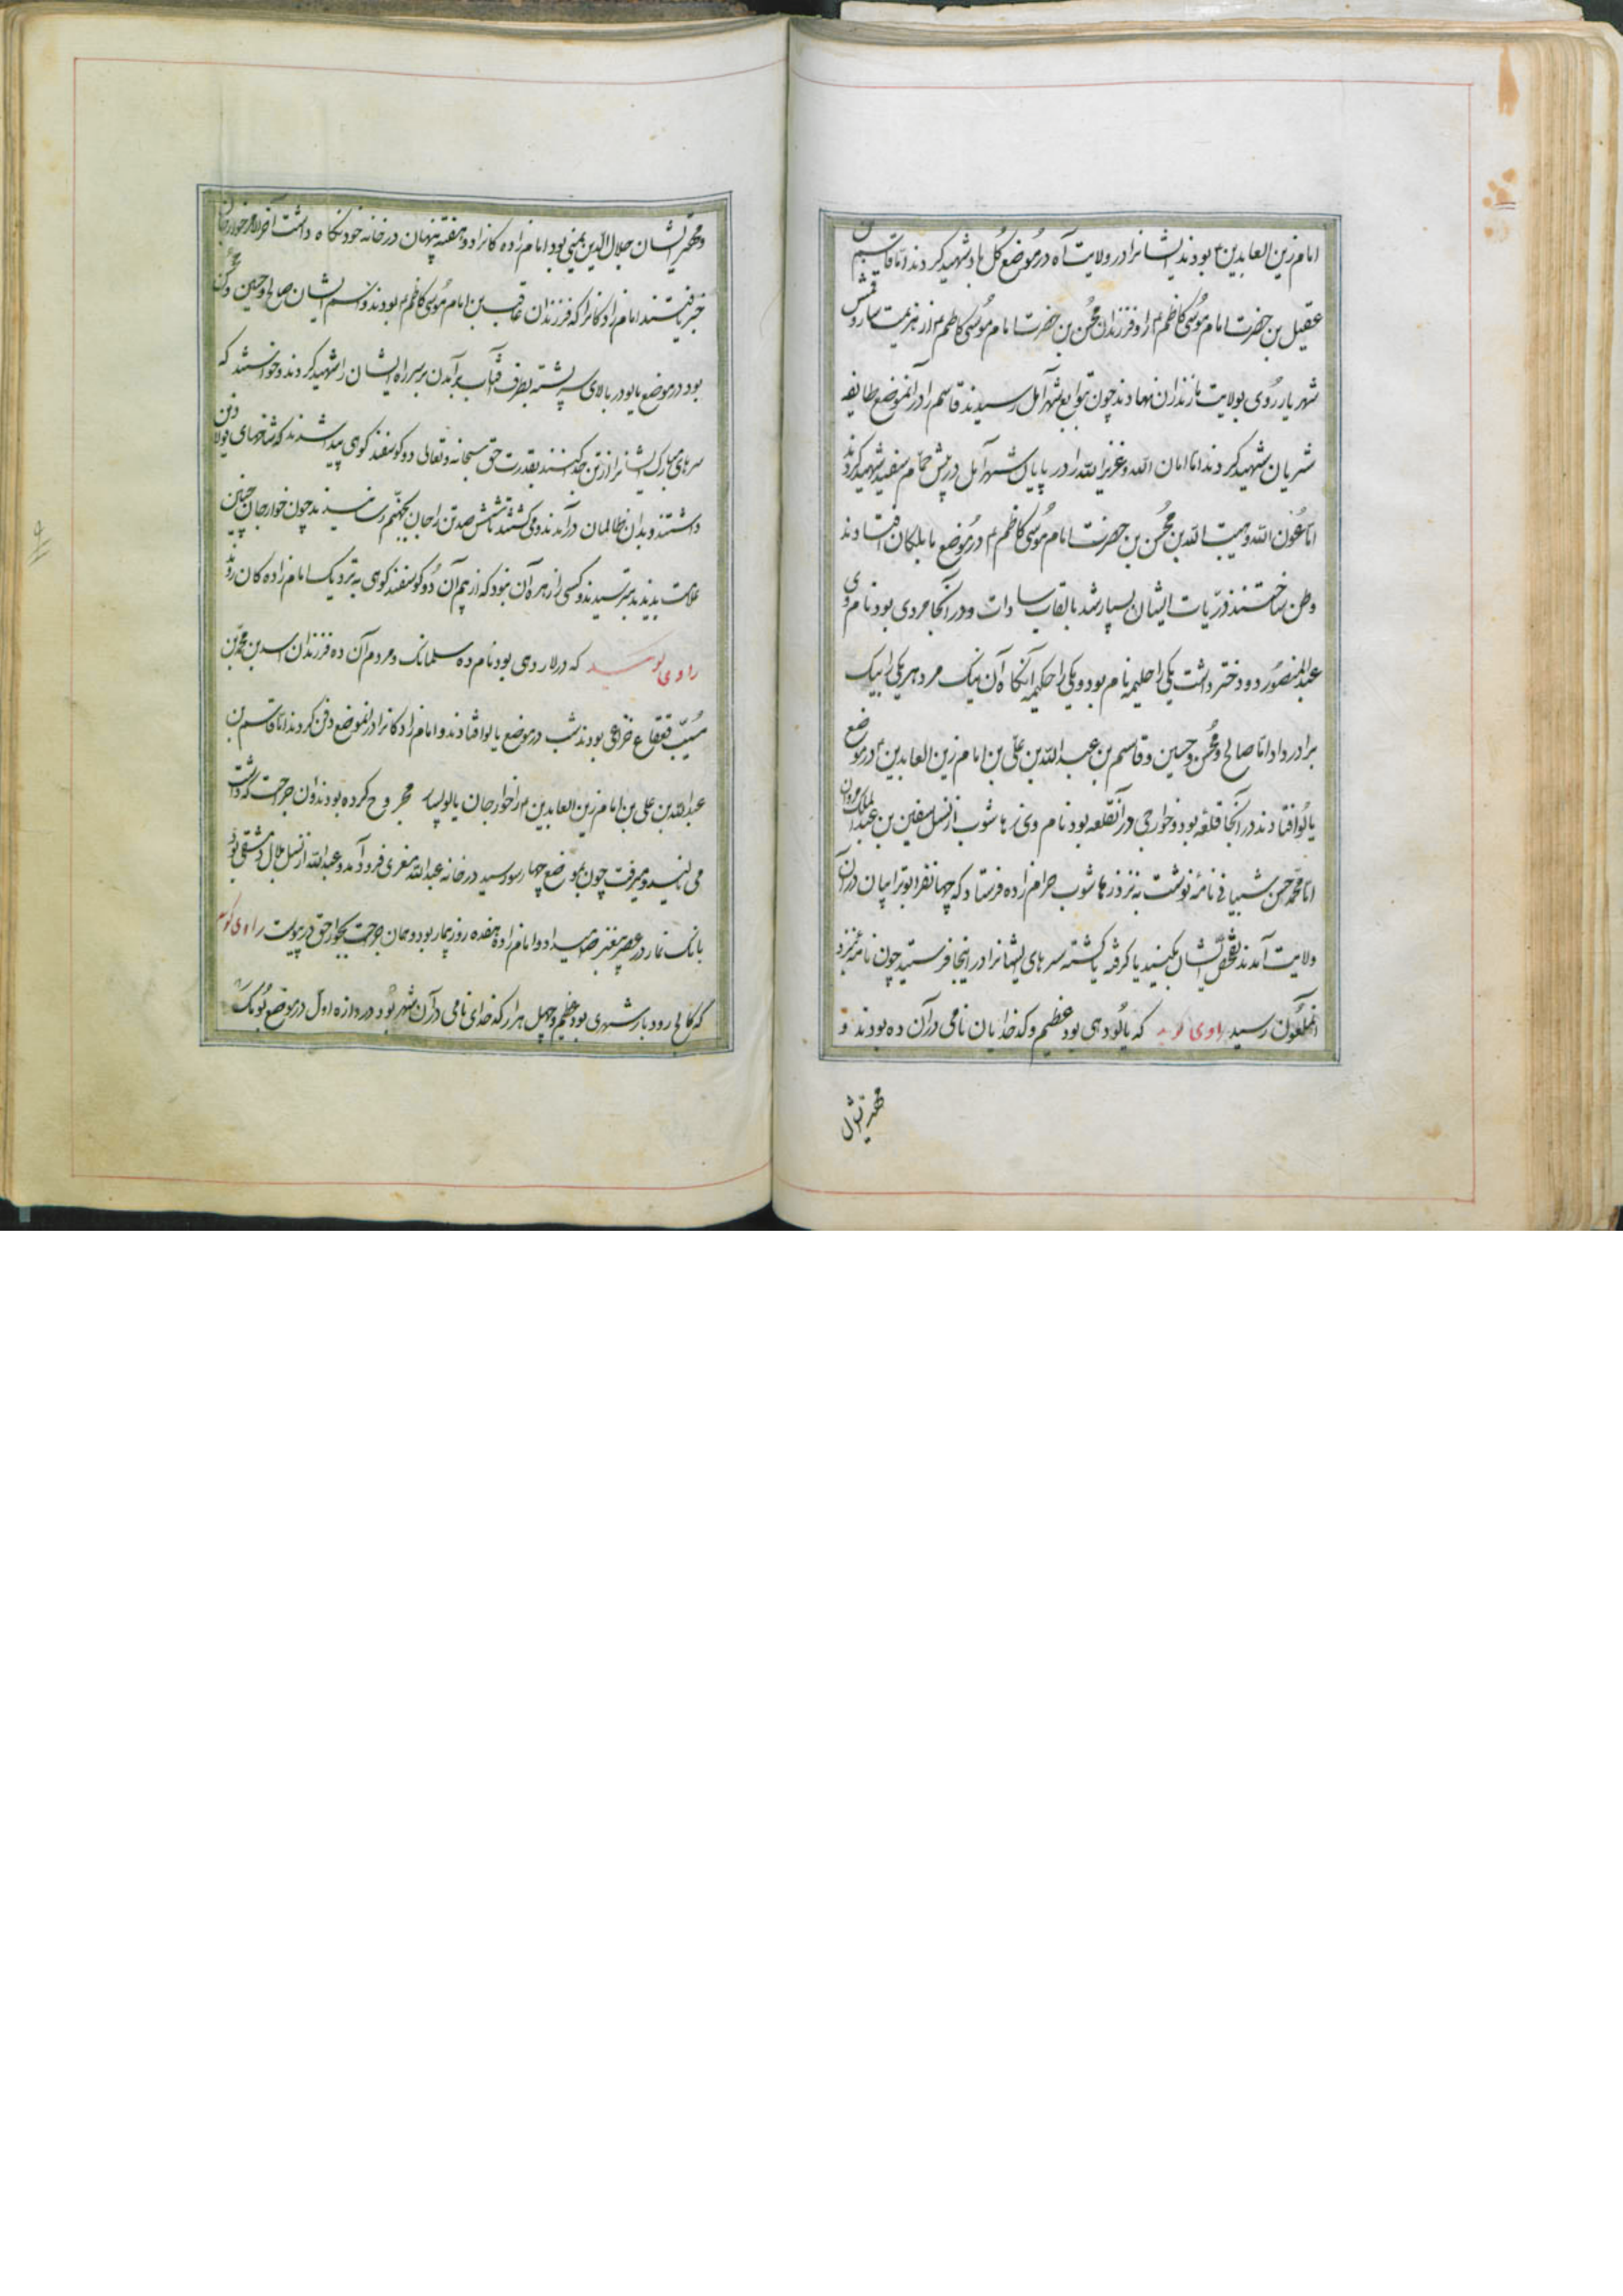 امام زین العابدین بودند ایشانرا در ولایت آه در موضع شهید کردند اما قاسم بن
عقیل بن حضرت امام موسی کاظم و فرزندان محسن بن حضرت امام موسی کاظم از هزیمت
شهریار روی بولایت مازندران نهادند چون بتوابع شهر آمل رسیدند قاسم را در آنموضع طایفه
شهید کردند اما امان الله و عزیز الله را در پایان شهر آمل در پیش حمام سفید شهید کردند
اما عون الله و هیبت الله بن محسن بن حضرت امام موسی کاظم در موضع افتادند
وطن ساختند ذریات ایشان بسیار شد بالقاب سادات و در آنجا مردی بود نام وی
عبدالمنصور دو دختر داشت یکی را حلیمه نام بود و یکی را حکیمه آنگاه آن نیک مرد هر یکی را بیک
برادر داد اما صالح و محسن و حسین و قاسم بن عبدالله بن علی بن امام زین العابدین در موضع
یالو افتادند در آنجا قلعه بود و خوارجی در آنقلعه بود نام وی زهاشوب از نسل سفین بن عبدالملک مروان
اما محمد حسن شیبانی نامه نوشت به نزد زهاشوب حرام زاده فرستاد که چهار نفر ابوترابیان در آن
ولایت آمدند تفحص ایشان بکنید یا گرفته یا کشته سرهای ایشانرا در اینجا فرستید چون نامه بنزد
آنملعون رسید راوی گوید که یالو دهی بود عظیم و کدخدایان نامی در آن ده بودند و
مهتر ایشان
و مهتر ایشان جلال الدین یمنی بود امام زاده کانرا دو هفته پنهان در خانه خود نگاه داشت آخر الامر خوارجان
خبر یافتند امام زادکانرا که فرزندان بن امام موسی کاظم بودند و اسم ایشان صالح و حسین و محسن
بود در موضع یالو در بالای سر پشته بطرف آفتاب برآمدن بر سر راه ایشان را شهید کردند و خواستند که
سرهای مبارک ایشانرا از تن جدا کنند بقدرت حق سبحانه و تعالی دو گوسفند کوهی پیدا شدند که شاخهای پولادین
داشتند و بدان ظالمان درآمدند و می کشتند تا شش صد تن را جان بجهنم رسانیدند چون خوارجان چنین
علامت بدیدند بترسیدند و کسی را زهره آن نبود که از بیم آن دو گوسفند کوهی به نزدیک امام زاده کان روند
راوی گوید که در لار دهی بود نام ده سلمانک و مردم آن ده فرزندان اسد بن محمد بن
مسیب قعقاع خزاعی بودند شب در موضع یالو افتادند و امام زادکانرا در آنموضع دفن کردند اما قاسم بن
عبدالله بن علی بن امام زین العابدین را خوارجان یالو بسیار مجروح کرده بودند و آن جراحت که داشت
می نالید و میرفت چون بموضع چهارسو رسید در خانه عبدالله مغری فرود آمد و عبدالله از نسل بلال دمشقی بود
بانک نماز در عصر پیغمبر میداد و امام زاده هفده روز بیمار بود و بهمان جراحت بجوار حق در پیوست راوی گوید
که کالج رودبار شهری بود عظیم و چهل هزار کدخدای نامی در آن شهر بود دروازه اول در موضع